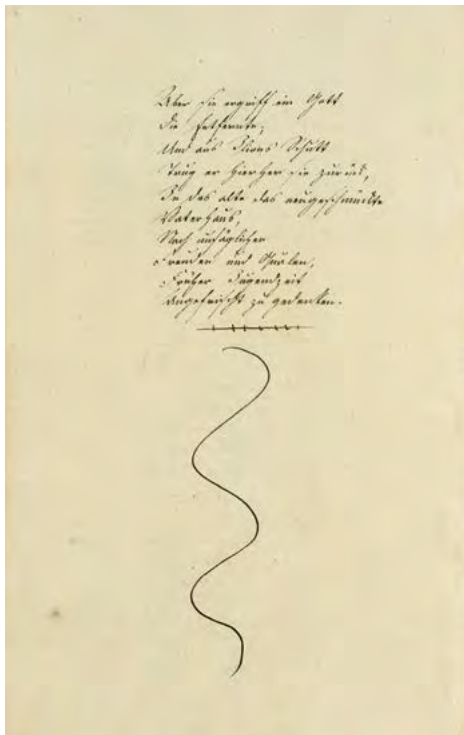 Aber sie ergriff ein Gott
Die Entfernte;
Und aus Ilions Schutt
Trug er hierher sie zurück,
In das alte das neugeschmückte
Vaterhaus,
Nach unsäglichen
Freuden und Qualen,
Früher Jugendzeit
Angefrischt zu gedenken.